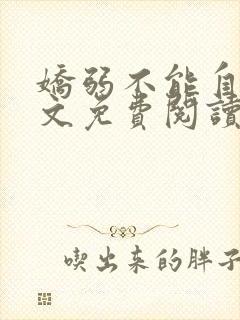 嬌弱不能自
文免費閱讀
喫出来的胖子